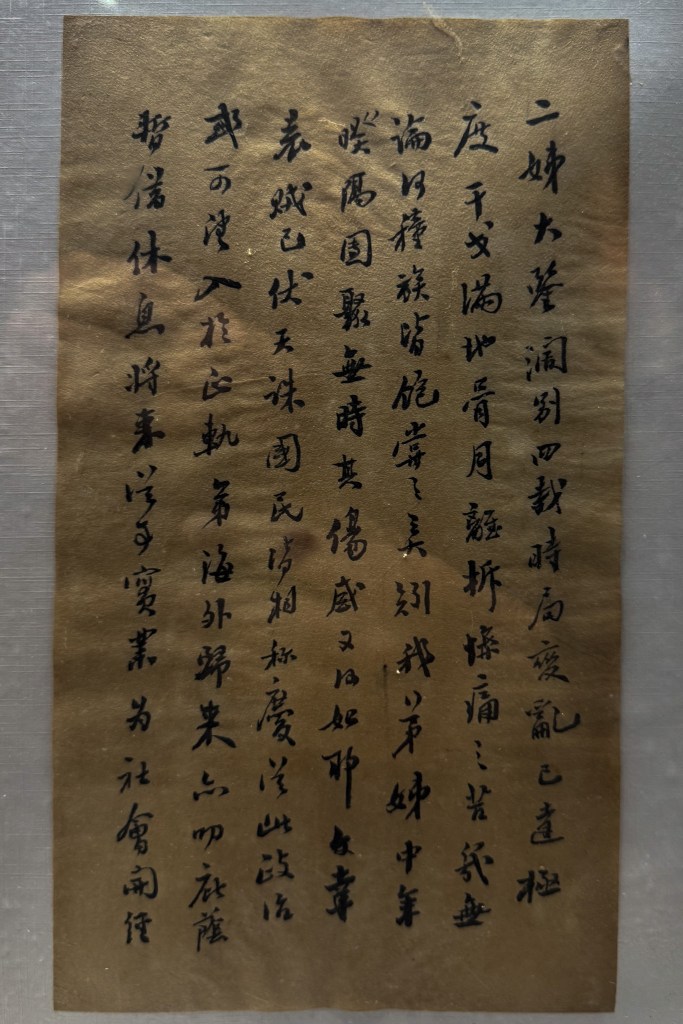 二姊大鑒濶別四載時局變亂已達極
度干戈滿地骨月離拆慘痛之苦我無
論何種族皆飽嘗之矣別我弟姊中年
暌隔團聚無時其傷感又何如耶幸
袁賊已伏天誅國民皆相称慶從此政治
或可望入於正軌弟海外歸來亦叨庇蔭
暫借休息將來從事實業為社會開經